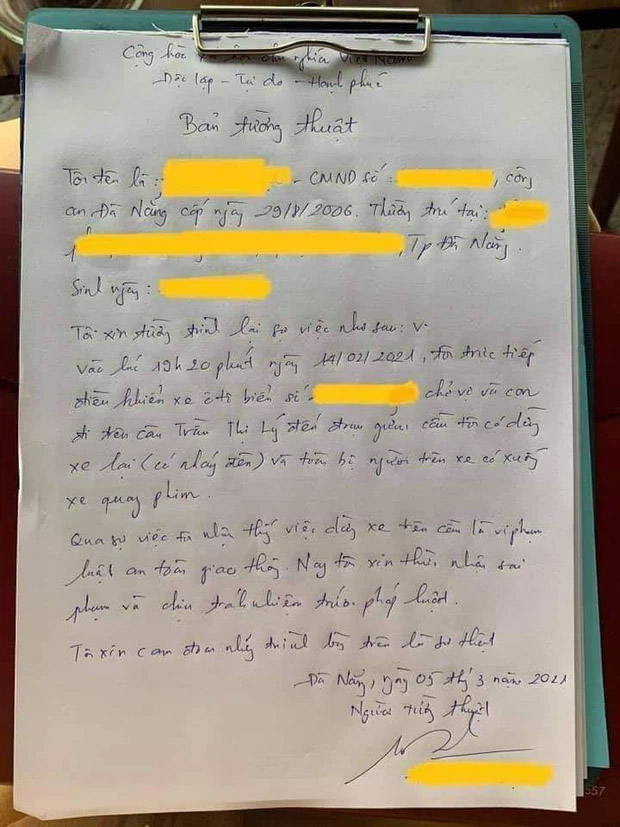 Cộng hòa xã hội chủ nghĩa Việt Nam
Độc lập - Tự do - Hạnh phúc
Bản tường thuật
Tôi tên là : - CMND số : , công
an Đà Nẵng cấp ngày 29/8/2006. Thường trú tại :
, Tp Đà Nẵng.
Sinh ngày :
Tôi xin tường trình lại sự việc như sau: V
vào lúc 19h20 phút ngày 14/02/2021, tôi trực tiếp
điều khiển xe ô tô biển số chở vợ và con
đi trên cầu Trần Thị Lý đến đoạn giữa cầu tôi có dừng
xe lại (có nháy đèn) và toàn bộ người trên xe có xuống
xe quay phim.
Qua sự việc tôi nhận thấy việc dừng xe trên cầu là vi phạm
luật an toàn giao thông. Nay tôi xin thừa nhận sai
phạm và chịu trách nhiệm trước pháp luật.
Tôi xin cam đoan những trình bày trên là sự thật
Đà Nẵng, ngày 05 thg 3 năm 2021
Người tường thuật
557